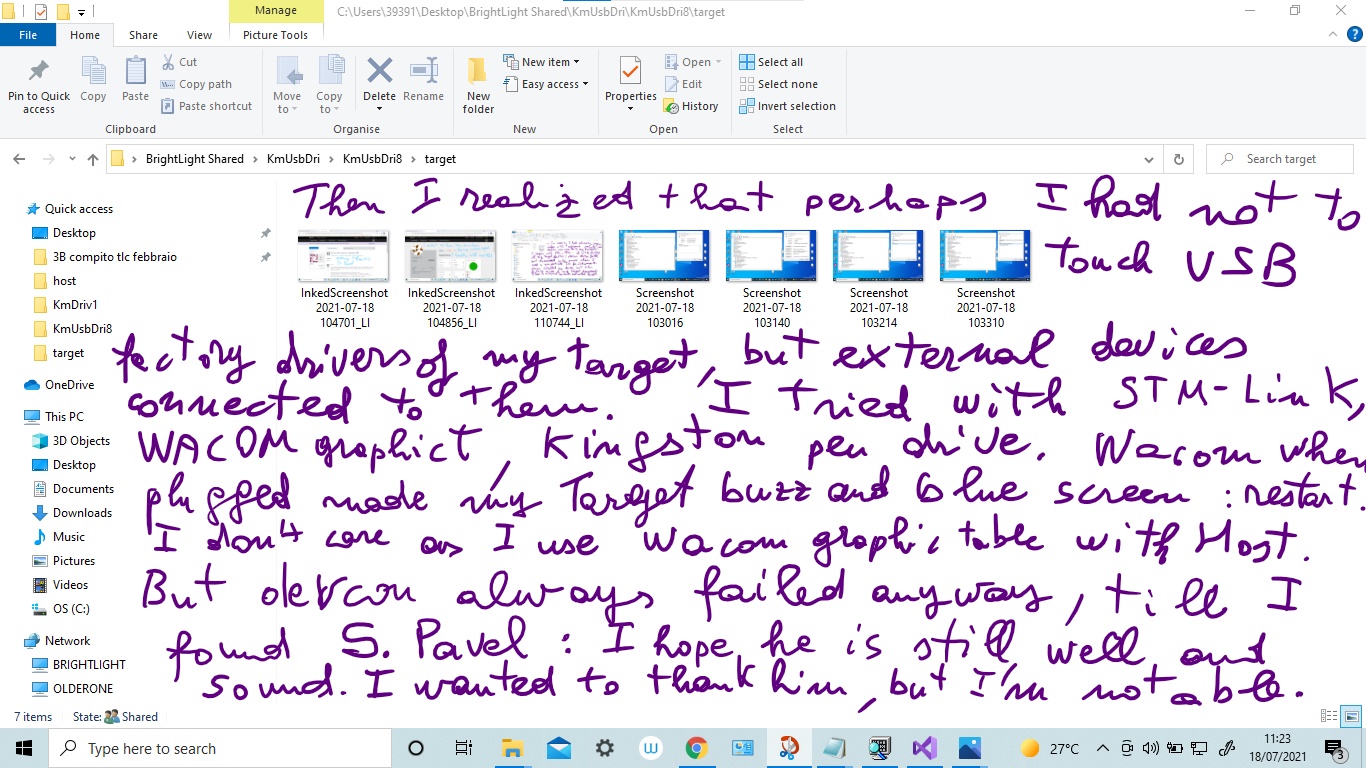 Manage
C:\Users\39391\Desktop\BrightLight Shared\KmUsbDri\KmUsbDri8\target
File Home Share View Picture Tools
Pin to Quick access
Copy
Paste
Cut
Copy path
Paste shortcut
Clipboard
Move to
Copy to
Delete
Rename
Organise
New folder
New item
Easy access
New
Properties
Open
Edit
History
Open
Select all
Select none
Invert selection
Select
BrightLight Shared > KmUsbDri > KmUsbDri8 > target
Search target
Quick access
Desktop
3B compito tlc febbraio
host
KmDriv1
KmUsbDri8
target
OneDrive
This PC
3D Objects
Desktop
Documents
Downloads
Music
Pictures
Videos
OS (C:)
Network
BRIGHTLIGHT
OLDERONE
InkedScreenshot 2021-07-18 104701_LI
InkedScreenshot 2021-07-18 104856_LI
InkedScreenshot 2021-07-18 110744_LI
Screenshot 2021-07-18 103016
Screenshot 2021-07-18 103140
Screenshot 2021-07-18 103214
Screenshot 2021-07-18 103310
Then I realized that perhaps I had not to
touch USB
factory drivers of my target, but external devices
connected to them. I tried with STM-Link,
WACOM graphict, Kingston pen drive. Wacom when
plugged made my Target buzz and blue screen : restart.
I don't care as I use Wacom graphic table with Host.
But devcon always failed anyway, till I
found S. Pavel : I hope he is still well and
sound. I wanted to thank him, but I'm not able.
7 items State: Shared
Type here to search
27°C
11:23
18/07/2021
3